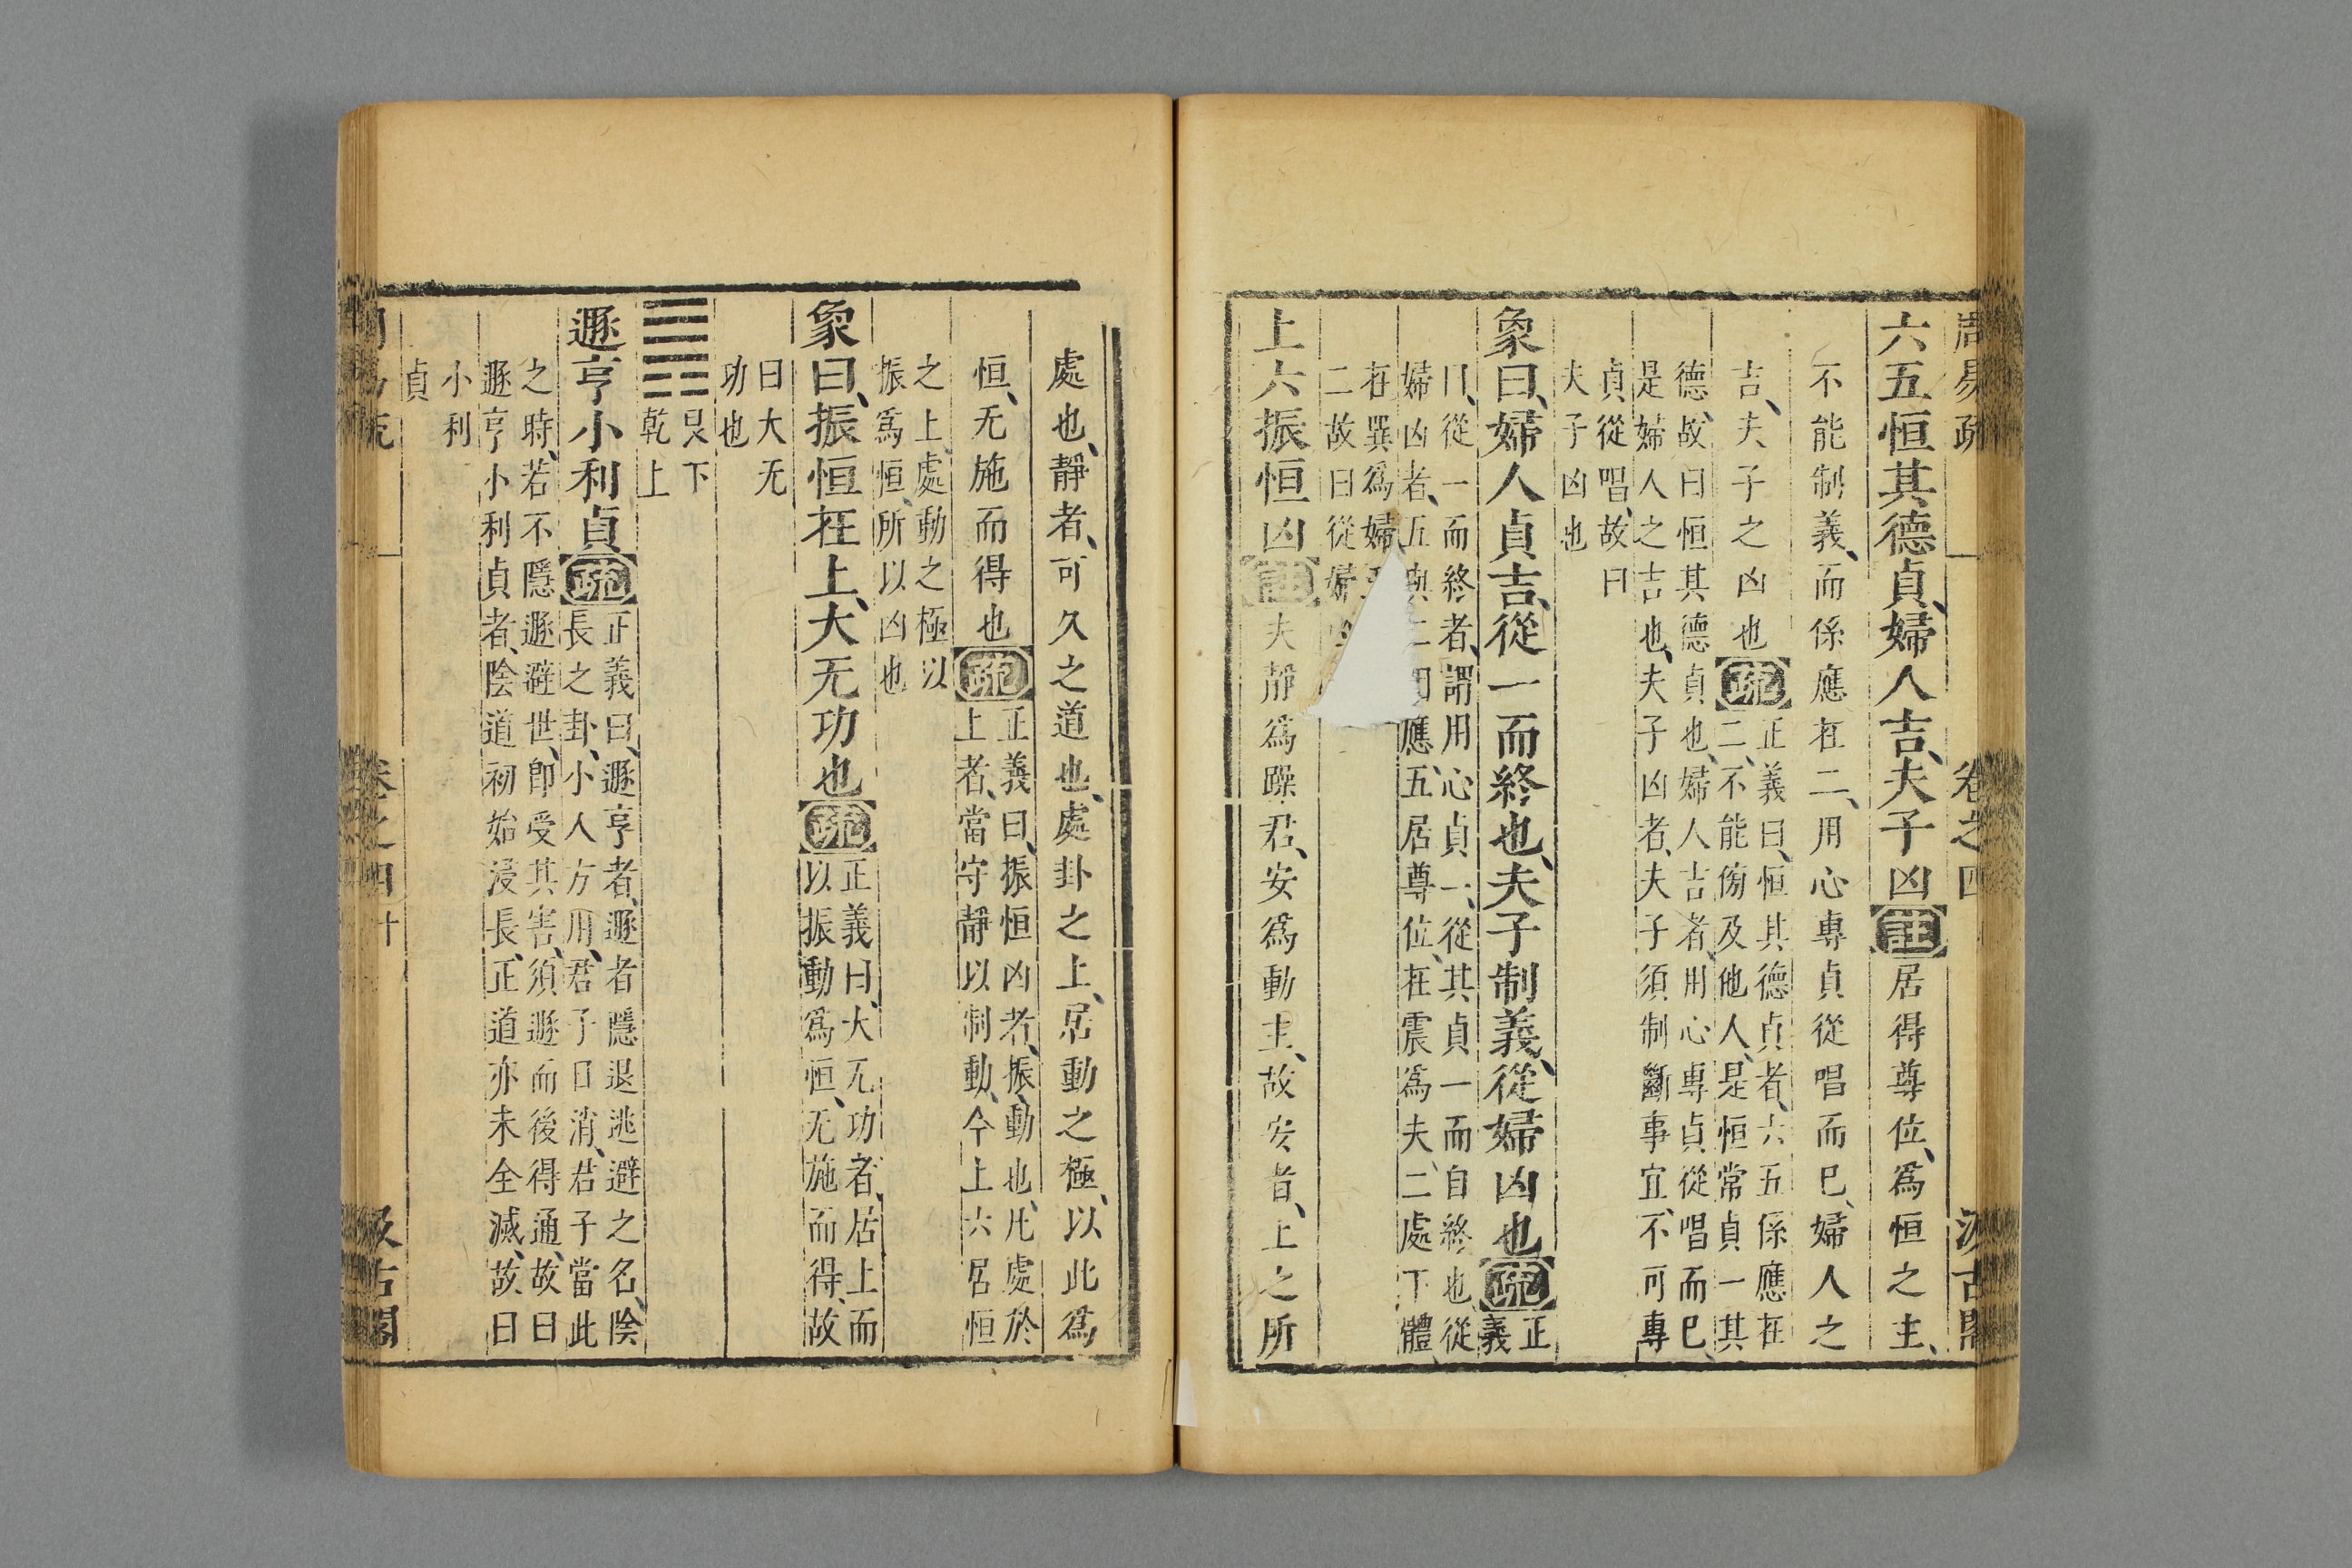 周易疏 卷之四 汲古閣
六五恒其德貞、婦人吉、夫子凶註居得尊位、爲恒之主、
不能制義、而係應在二、用心專貞從唱而巳、婦人之
吉、夫子之凶也疏正義曰、恒其德貞者、六五係應在
二、不能傍及他人、是恒常貞一其
德、故曰恒其德貞也、婦人吉者、用心專貞從唱而巳、
是婦人之吉也、夫子凶者、夫子須制斷事宜、不可專
貞從唱、故曰
夫子凶也
象曰、婦人貞吉、從一而終也、夫子制義、從婦凶也疏正
義
曰、從一而終者、謂用心貞一、從其貞一而自終也、從
婦凶者、五與二相應、五居尊位、在震爲夫、二處下體、
在巽爲婦、
二故曰從婦
上六振恒凶註夫靜爲躁君、安爲動主、故安者、上之所
處也、靜者、可久之道也、處卦之上、居動之極、以此爲
恒、无施而得也疏正義曰、振恒凶者、振、動也、凡處於
上者、當守靜以制動、今上六居恒
之上、處動之極以
振爲恒、所以凶也
象曰、振恒在上、大无功也疏正義曰、大无功者、居上而
以振動爲恒、无施而得、故
曰大无
功也
艮下
乾上
遯亨小利貞疏正義曰、遯亨者、遯者隱退逃避之名、陰
長之卦、小人方用、君子日消、君子當此
之時、若不隱遯避世、卽受其害、須遯而後得通、故曰
遯亨小利貞者、陰道初始浸長、正道亦未全滅、故曰
小利
貞
周易疏 卷之四 十 汲古閣